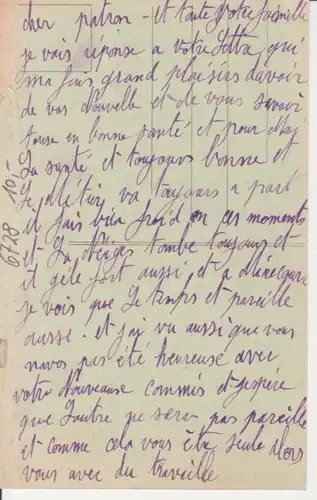 cher patron - et toute votre famille
je vais réponse a votre lettre qui
ma fais grand plaisirs davoir
de vos Nouvelle et de vous savoir
touse en bonne santé et pour Moj
La santé et toujours bonne et
Le Métier va toujours a part
il fais bien froid on ces moments
et La Néige tombe toujours et
il géle fort aussi et a Mirecour
je vois que Le temps et pareille
ausse. et j'ai vu aussi que vous
navos pas été heureuse avec
votre Nouveause commis et jespére
que Lautre ne sera pas pareille
et comme cela vous éte seule alors
vous avec du travaille
6728 10,-